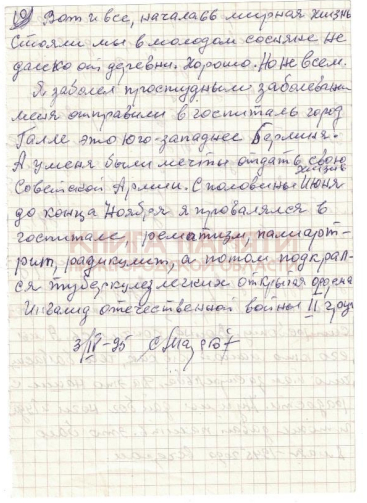 Вот и все, началась мирная жизнь
Стояли мы в молодом сосняке не
далеко от деревни. Хорошо. Но не всем.
Я заболел простудным заболеван
меня отправили в госпиталь город
Галле это юго-западнее Берлина.
А у меня были мечты отдать свою
жизнь
Советской Армии. С половины Июня
до конца Ноября я провалялся в
госпитале рематизм, палиарт-
рит, радикулит, а потом подкрал-
ся туберкулез легких открытая форма
Инвалид отечественной войны II груп
КНИГА ПАМЯТИ
3/IV-95